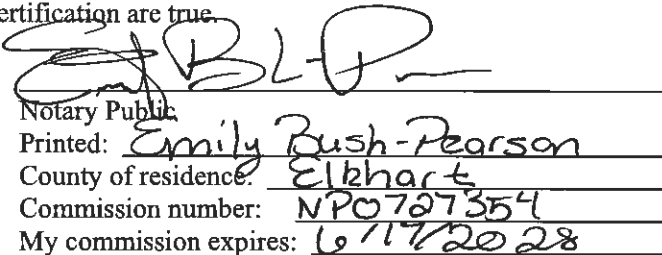 ertification are true.
Notary Public
Printed: Emily Bush-Pearson
County of residence: Elkhart
Commission number: NP0727354
My commission expires: 6/17/2028